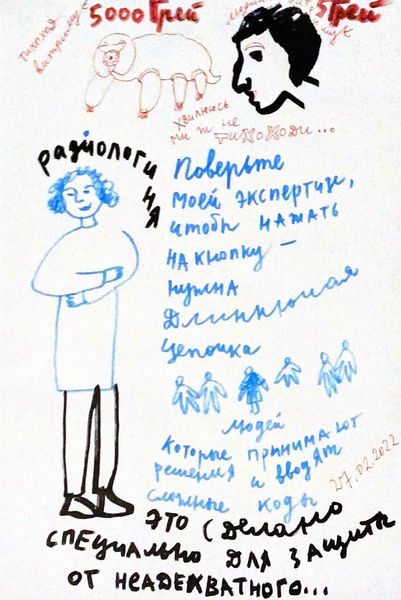 5000 Грей
5 Грей
хвилююсь
ми ж не
тихоходи...
радиологиня
Поверьте
моей экспертизе,
чтобы нажать
на кнопку –
нужна
Длиннющая
цепочка
людей
которые принимают
решения и вводят
сложные коды
27.02.2022
Это сделано
специально для защиты
от неадекватного...